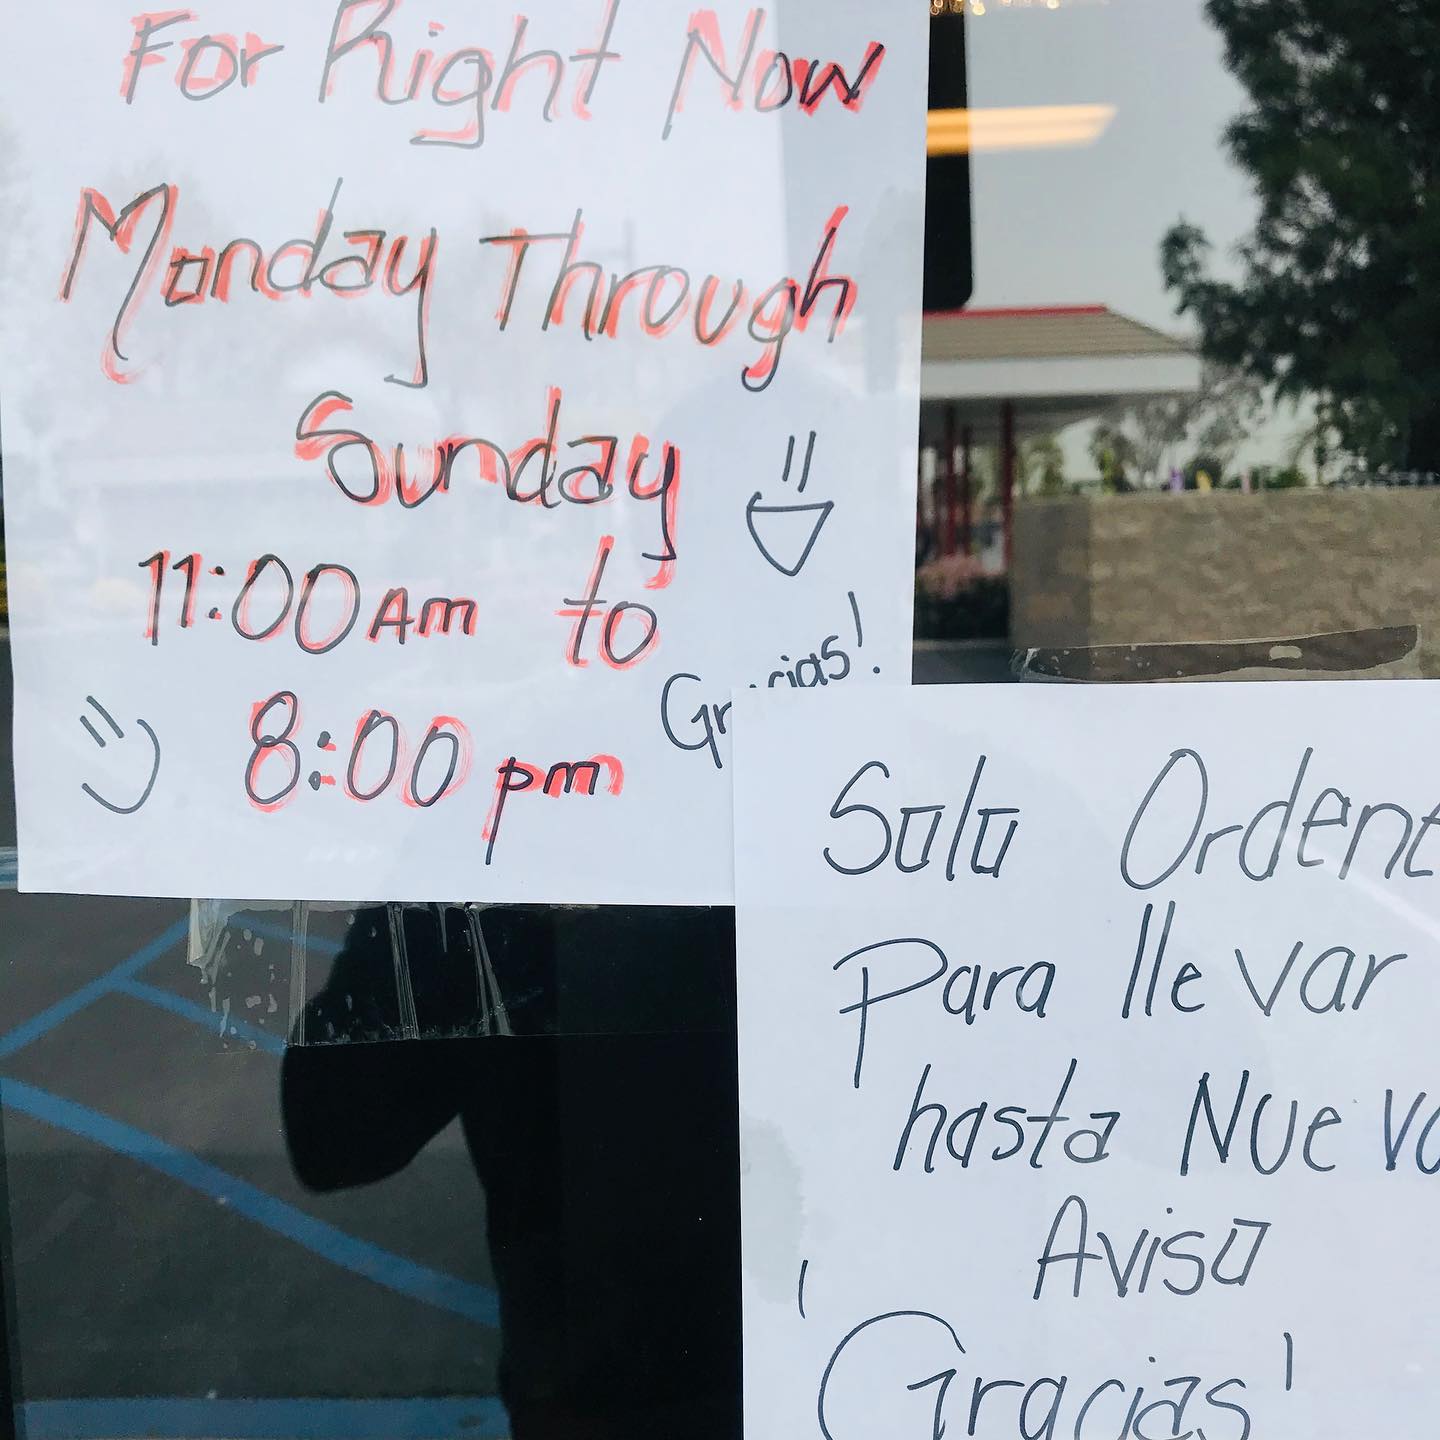 For Right Now
Monday Through
Sunday
11:00 Am to
8:00 pm
Gracias!
Solo Ordene
Para llevar
hasta Nuevo
Aviso
¡Gracias!